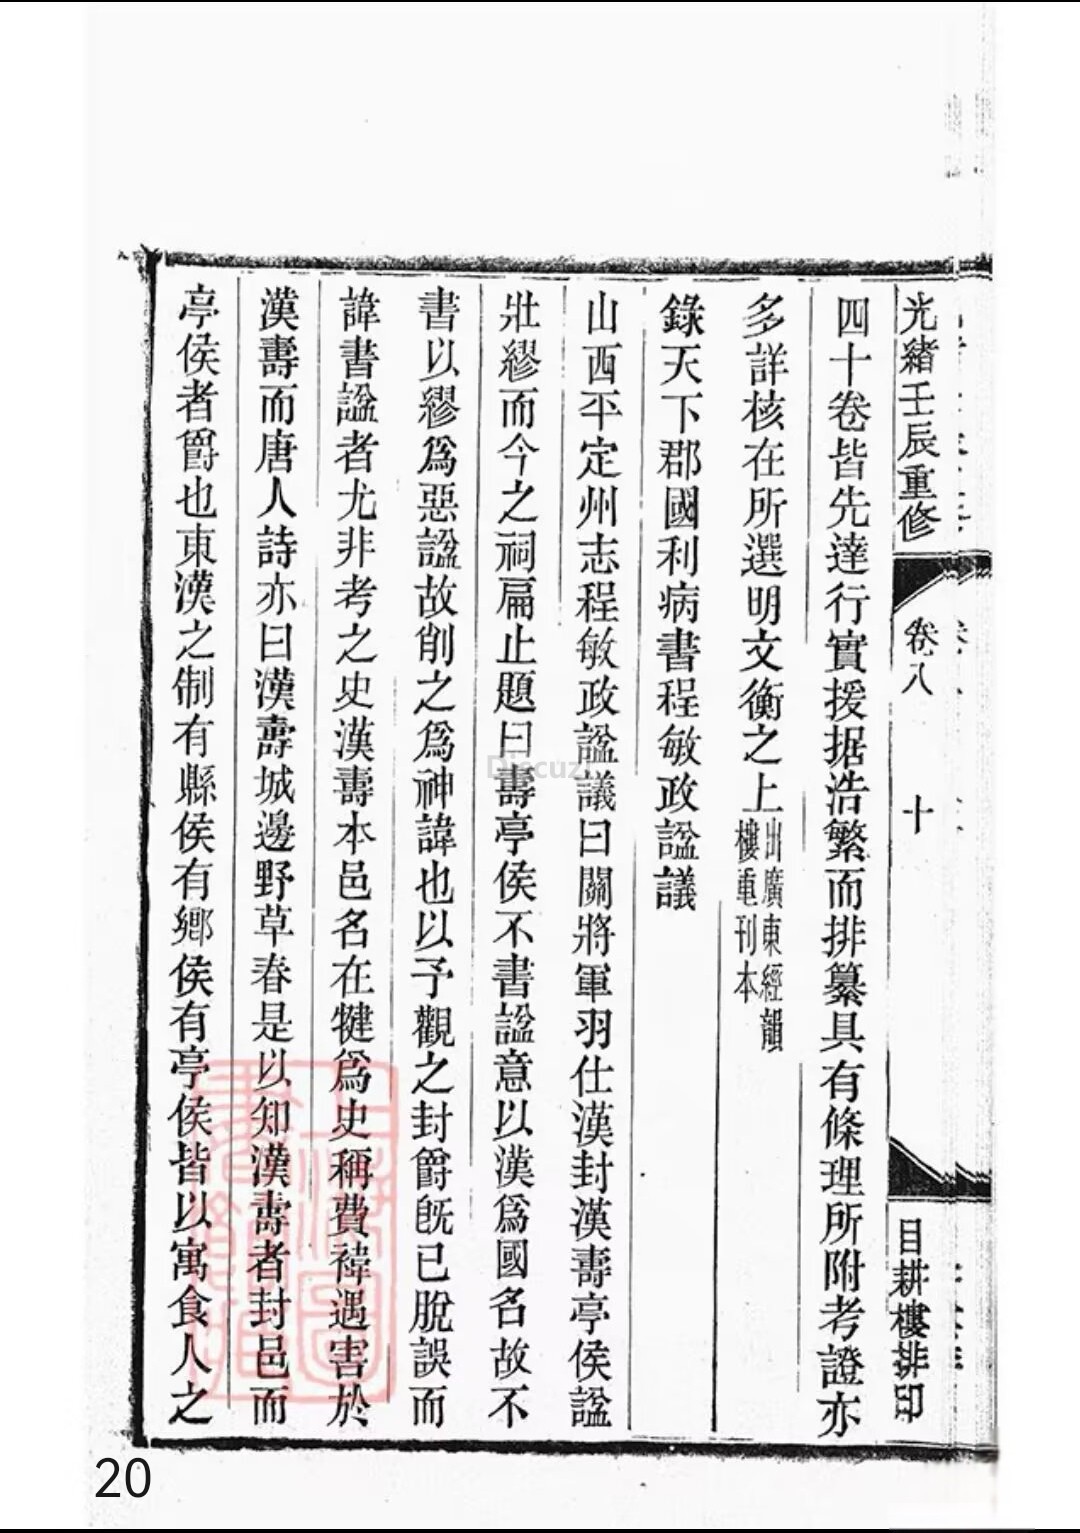 光緒壬辰重修
卷八
十
目耕樓排印
四十卷皆先達行實援据浩繁而排纂具有條理所附考證亦
多詳核在所選明文衡之上出廣東經韻
樓重刊本
錄天下郡國利病書程敏政諡議
山西平定州志程敏政諡議曰關將軍羽仕漢封漢壽亭侯諡
壯繆而今之祠扁止題曰壽亭侯不書諡意以漢爲國名故不
書以繆爲惡諡故削之爲神諱也以予觀之封爵旣已脫誤而
諱書諡者尤非考之史漢壽本邑名在犍爲史稱費禕遇害於
漢壽而唐人詩亦曰漢壽城邊野草春是以知漢壽者封邑而
亭侯者爵也東漢之制有縣侯有鄉侯有亭侯皆以寓食人之
Discuz!
20